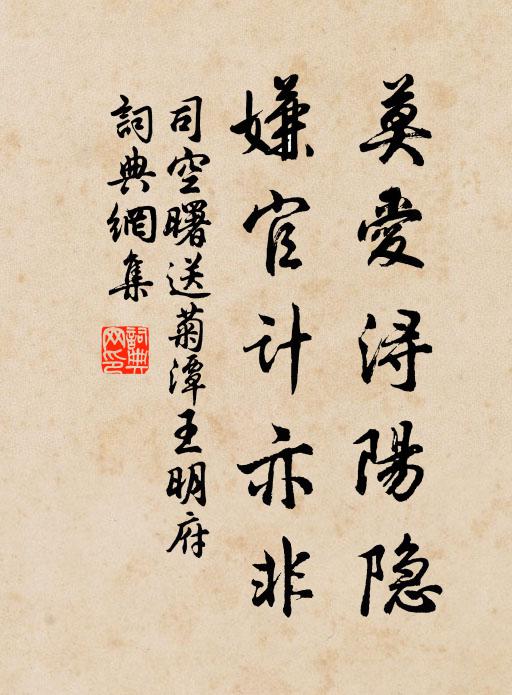 莫愛潯陽隐
嫌官计亦非
司空曙送菊潭王明府
詞典網集
詞典网印